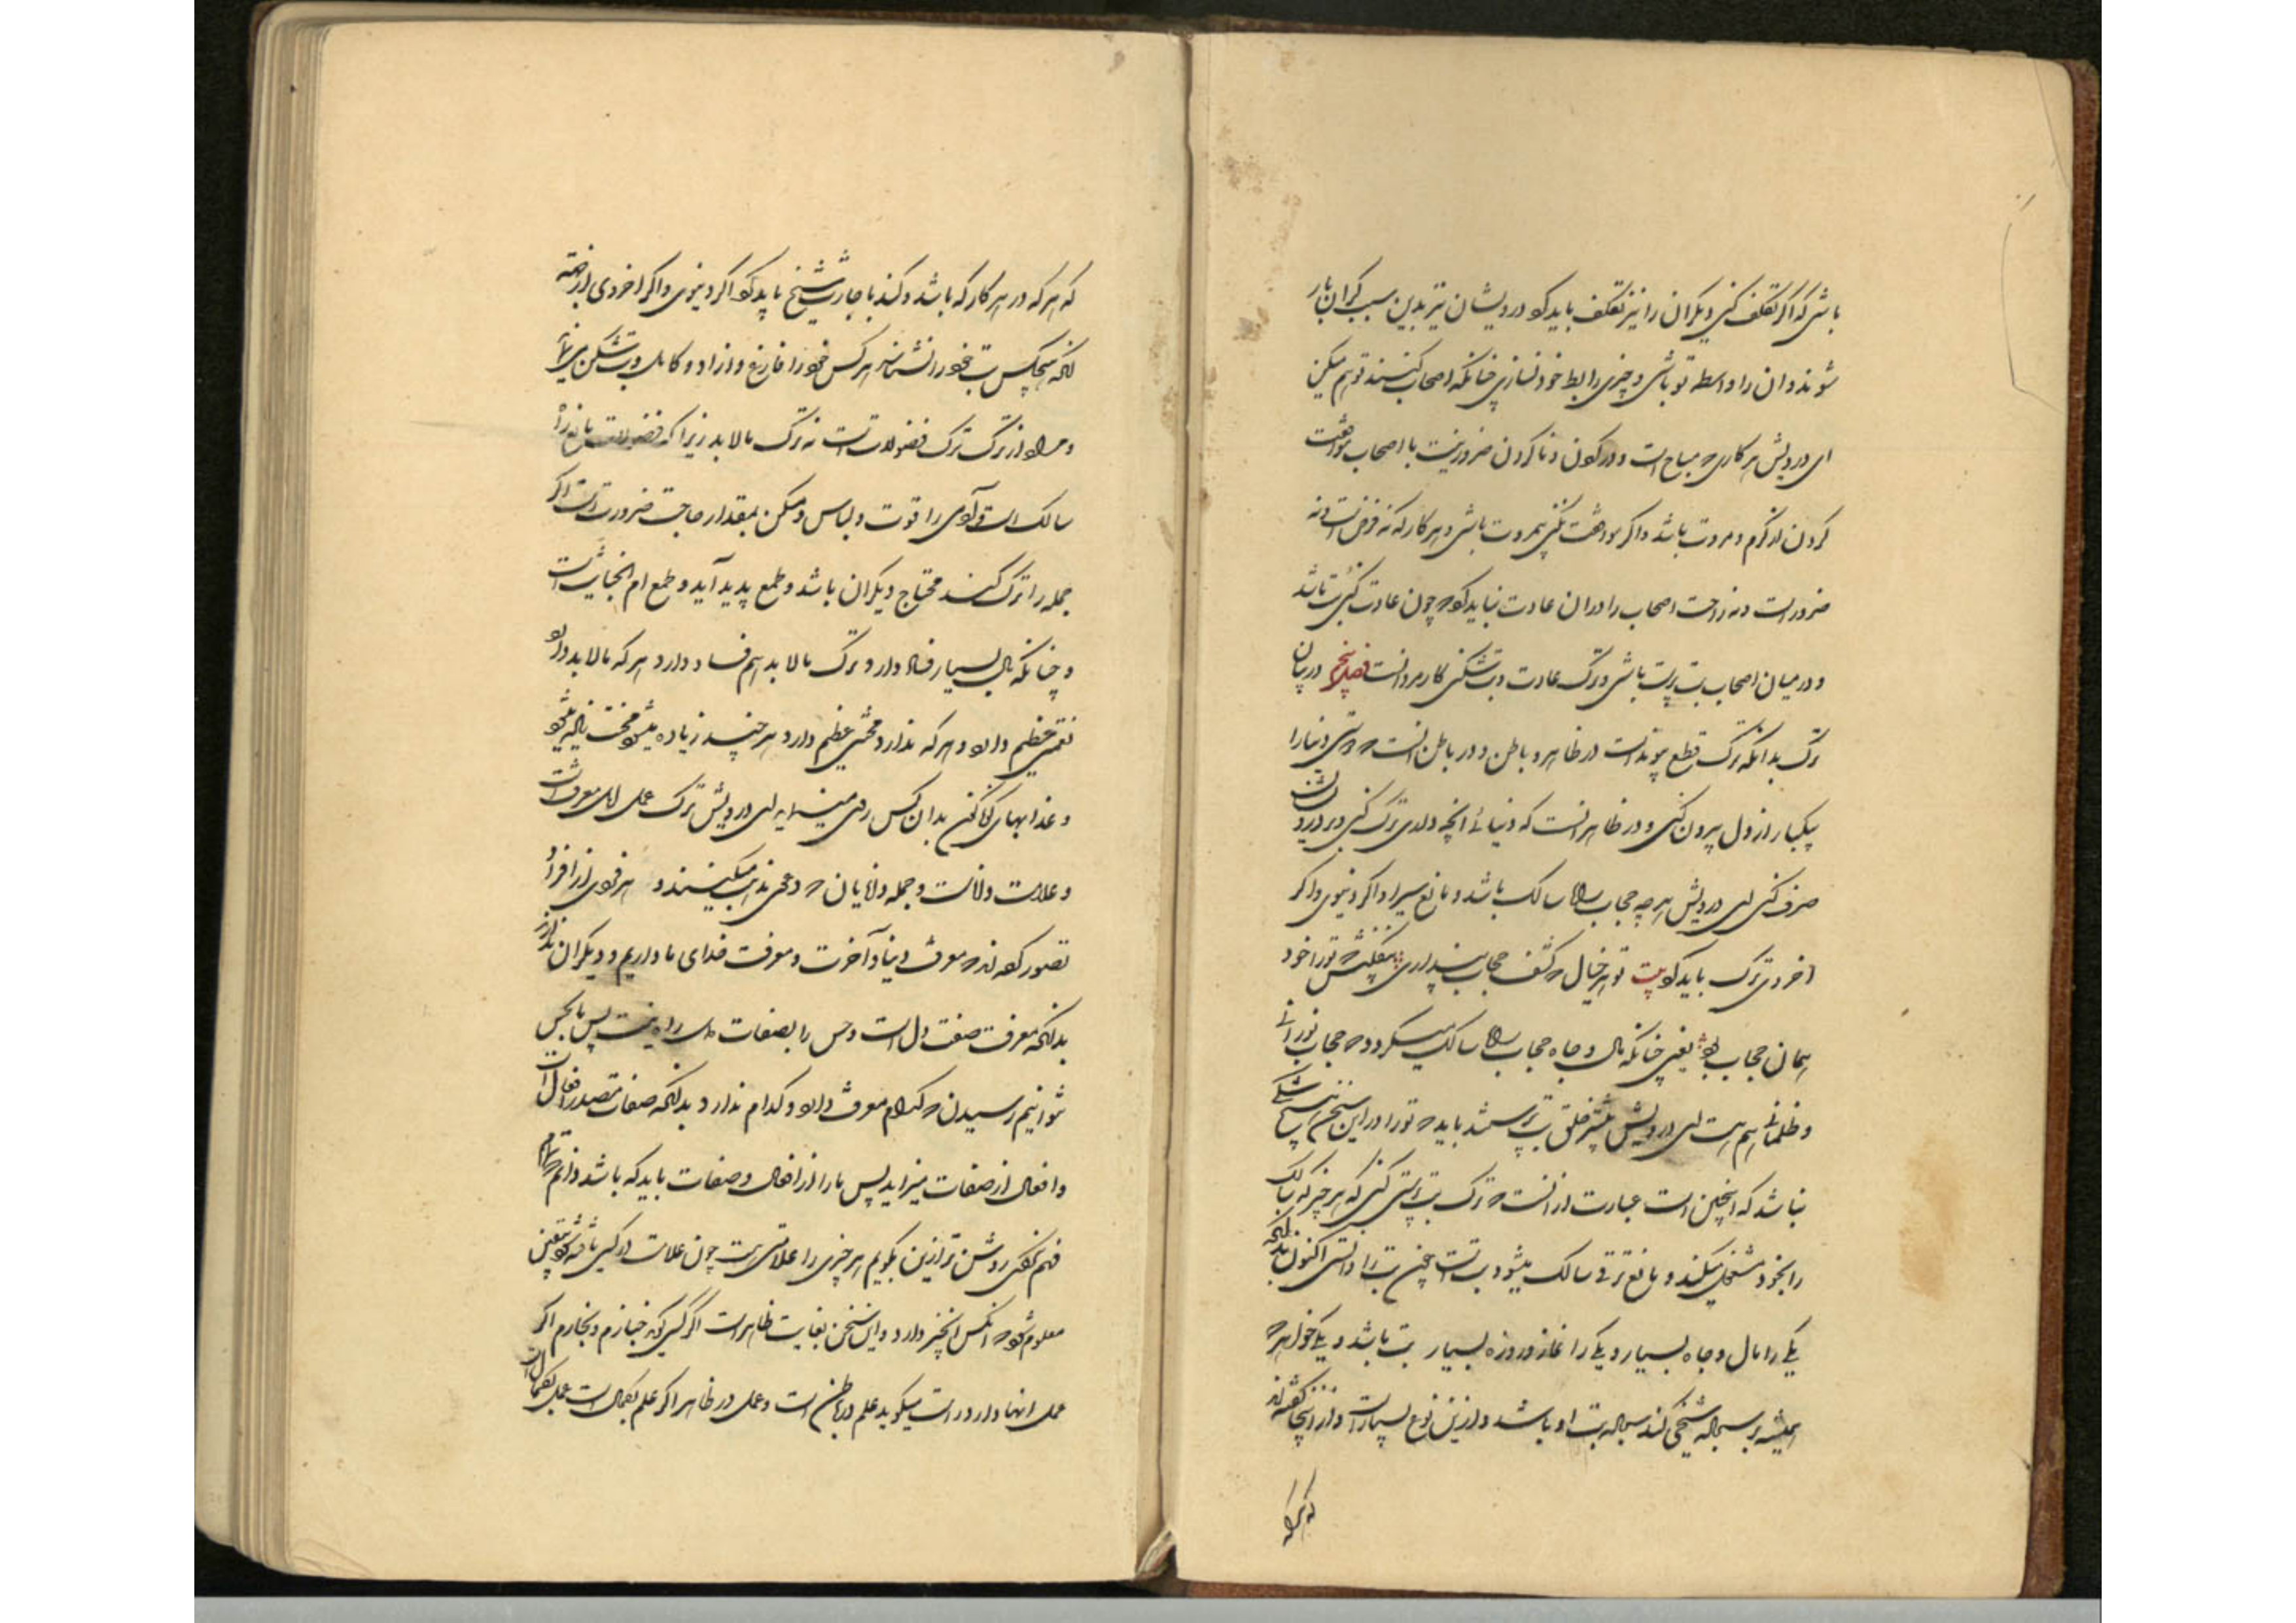 باشی که اگر تکلف کنی دیگران را نیز تکلف باید کرد درویشان نیز بدین سبب گران بار
شوند و ان را واسطه تو باشی و چیزی را بط خود نسازی چنانکه اصحاب کنند تو هم میکن
ای درویش هر کاری که مباح است و در کردن و ناکردن ضرور نیست با اصحاب موافقت
کردن از کرم و مروت باشد و اگر موافقت نکنی بیمروت باشی و هر کار که نه فرض است و نه
ضرور است و نه راحت اصحاب را در ان عادت نباید کرد که چون عادت کنی بت باشد
و در میان اصحاب بت پرست باشی و ترک عادت و بت شکنی کار مردانست فصل پنجم در بیان
ترک بدانکه ترک قطع پیوند است در ظاهر و باطن و در باطن انست که دوستی دنیا را
بیکبار از دل بیرون کنی و در ظاهر انست که دنیائی انچه داری ترک کنی و بر درویشان
صرف کنی ای درویش هر چه حجاب راه سالک باشد و مانع سیر او اگر دنیوی و اگر
اخروی ترک باید کرد بیت تو هر خیال که کشف حجاب پنداری بیفکنش که تو را خود
همان حجاب بود یعنی چنانکه مال و جاه حجاب راه سالک میگردد که حجاب نورانی
و ظلمانی هم هست ای درویش بیشتر خلق بت پرستند باید که تو را در این سخن هیچ شکی
نباشد که اینچنین است عبارت از انست که ترک بت پرستی کنی که هر چیز که سالک
را بخود مشغول میکند و مانع ترقی سالک میشود بت است چون بت را دانستی اکنون بدانکه
یکی را مال و جاه بسیار و یکی را نماز و روزه بسیار بت باشد و یکی خواهد که
همیشه بر سجاده شیخی کند سجاده بت او باشد و ازین نوع بسیار است و از اینجا گفته اند
که هر که
که هر که در هر کار که باشد و کند باجازت شیخ باید کرد اگر دنیوی و اگر اخروی از جهة
انکه هیچکس بت خود را نشناسد هر کس خود را فارغ و ازاد و کامل و بت شکن می پندارد
و مراد از ترک ترک فضولات است نه ترک مالابد زیرا که فضولات مانع راه
سالک است و آدمی را قوت و لباس و مسکن بمقدار حاجت ضرورت است اگر
جمله را ترک کند محتاج دیگران باشد و طمع پدید آید و طمع ام الخبایث است
و چنانکه مال بسیار فساد دارد ترک مالابد هم فساد دارد هر که مالابد دارد
نعمتی عظیم دارد و هر که ندارد محنتی عظیم دارد هر چند زیاده میشود محنت زیاده میشود
و عذابهای گوناگون بدان کس روی مینماید ای درویش ترک عمل اهل معرفت است
و علامت داناست و جمله دانایان که دعوی میکنند و هر فردی از افراد
تصور کرده اند که معرفت دنیا و آخرت و معرفت خدای ما داریم و دیگران ندارند
بدانکه معرفت صفت دل است و حس را بصفات دل راه نیست پس ما بحس
نتوانیم رسیدن که کدام معرفت دارد و کدام ندارد بدانکه صفات مصدر افعال است
و افعال از صفات میزاید پس ما را از افعال و صفات باید که باشد دانم که تمام
فهم نکردی روشن تر ازین بگویم هر چیزی را علامتی هست چون علامت در کسی یافته شود یقین
معلوم شود که انکس انچیز دارد و این سخن بغایت ظاهر است اگر کسی گوید خبازم و نجارم اگر
عمل انها دارد راست میگوید علم در باطن است و عمل در ظاهر اگر علم بکمال است عمل بکمال است